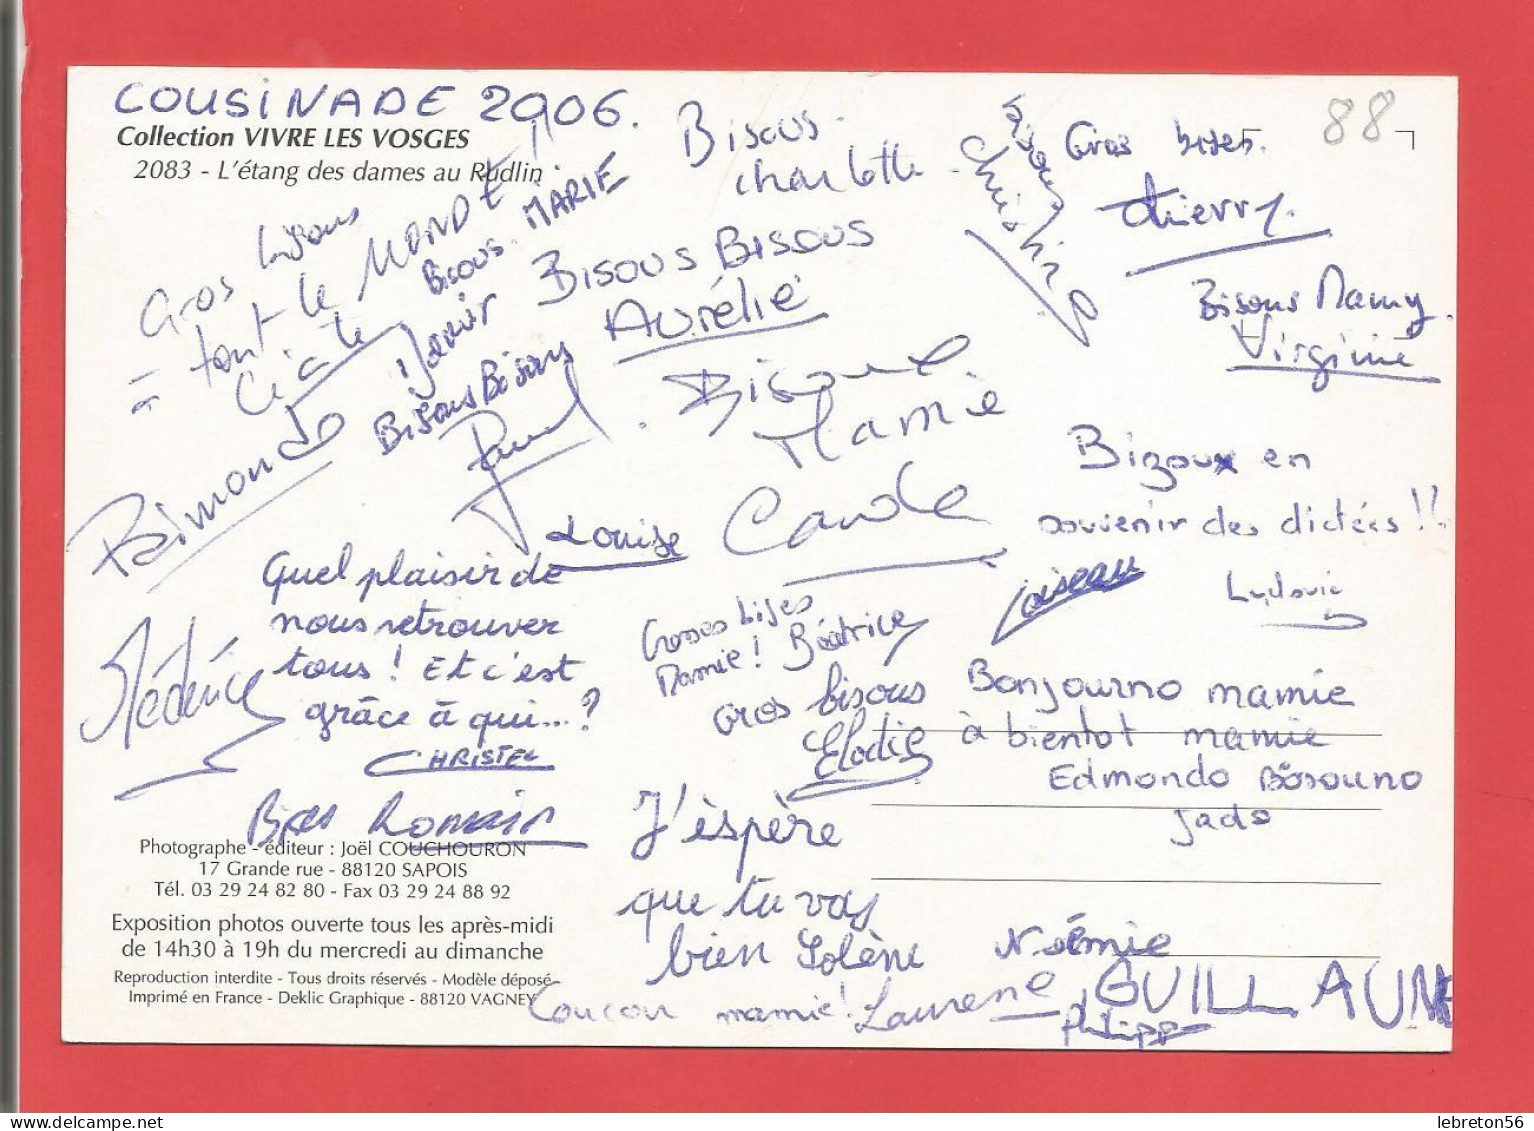 COUSINADE 2006.
Collection VIVRE LES VOSGES
2083 - L'étang des dames au Rudlin
Gros bisous
à tout le MONDE !!
Bisous MARIE
Bisous
Charlotte
Bisous
Christine
Gros bises.
thierry.
88
Bisous Mamy.
Virginie
Bisous Bisous
Aurélie
Bisous Bisous
Raimondo
Bisous
Mamie
Carole
Louise
Bizoux en
souvenir des dictées !!
Loiseau
Ludovic
Quel plaisir de
nous retrouver
tous ! Et c'est
grâce à qui...?
CHRISTEL
Grosses bises
Mamie ! Béatrice
Gros bisous
Elodie
Bonjourno mamie
à bientot mamie
Edmondo Bosouno
Jado
Romain
J'èspère
que tu vas
bien Solène
Noémie
GUILLAUME
Coucou mamie !
Laurene
Philippe
Photographe - éditeur : Joël COUCHOURON
17 Grande rue - 88120 SAPOIS
Tél. 03 29 24 82 80 - Fax 03 29 24 88 92
Exposition photos ouverte tous les après-midi
de 14h30 à 19h du mercredi au dimanche
Reproduction interdite - Tous droits réservés - Modèle déposé
Imprimé en France - Deklic Graphique - 88120 VAGNEY
lebreton56